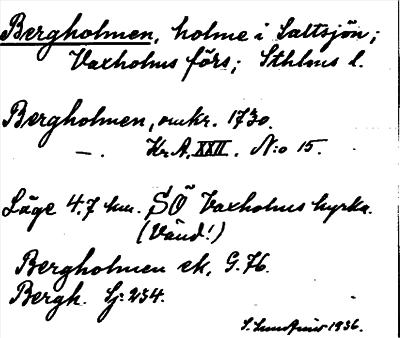 Bergholmen, holme i Saltsjön;
Vaxholms förs; Sthlms l.
Bergholmen, omkr. 1730.
—. Kr.A. XXII. N:o 15.
Läge 4.7 km. SÖ Vaxholms kyrka.
(Vänd!)
Bergholmen ek. G. 76.
Bergh. Lj: 234.
1936.